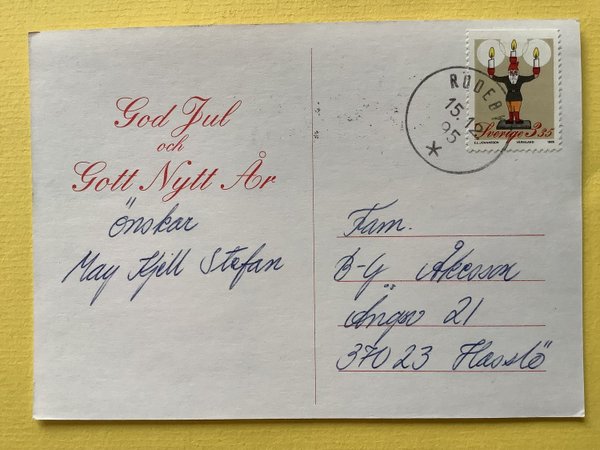 God Jul
och
Gott Nytt År
önskar
May Kjell Stefan
RÖDEBY
15.12
95
Sverige 3.35
Fam.
B-G Åkesson
Ängsv 21
370 23 Hasslö